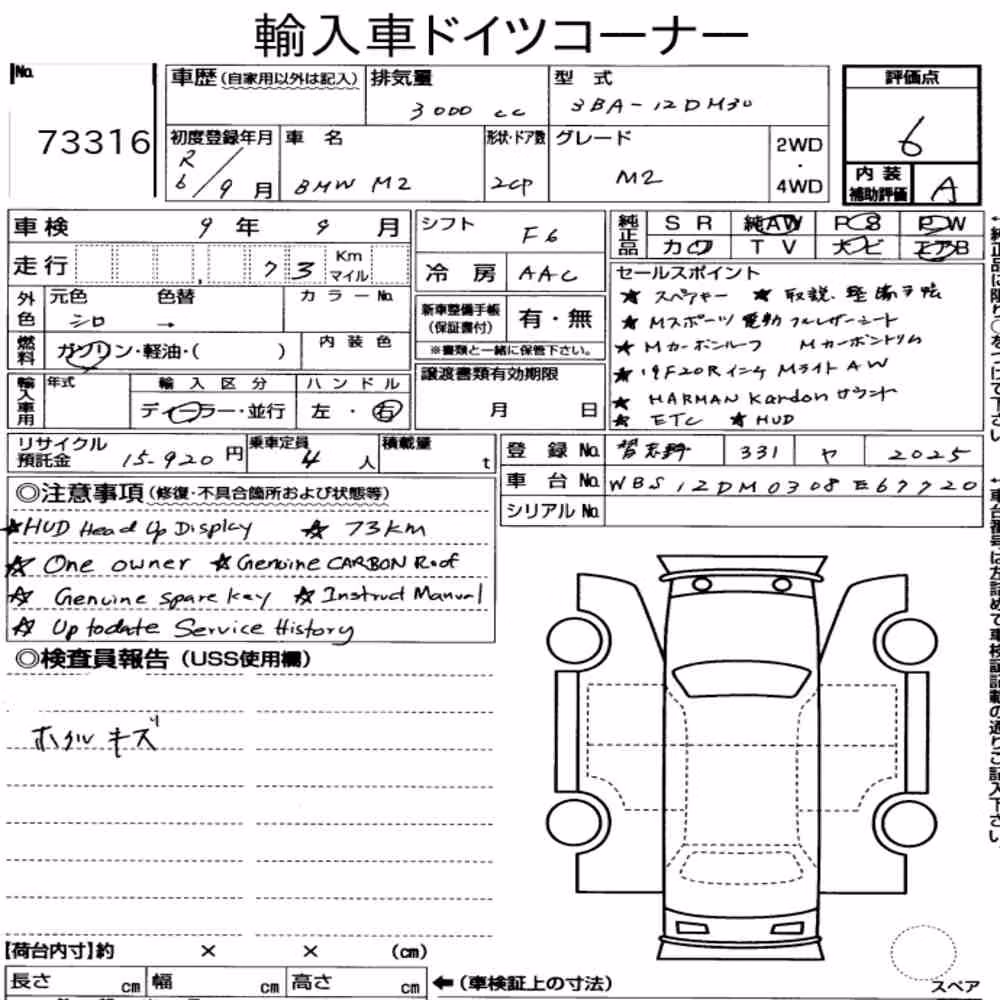 輸入車ドイツコーナー
No.
73316
車歴 (自家用以外は記入)
排気量
3000 cc
型 式
3BA-12DM30
評価点
6
初度登録年月
R6/9月
車 名
BMW M2
形状・ドア数
2CP
グレード
M2
2WD
・
4WD
内 装
補助評価
A
車検 9年 9月
走行 , 73 Km マイル
シフト F6
冷 房 AAC
純正品
S R 純AW P S P W
カワ T V ナビ エアB
外色
元色 色替 カラーNo.
シロ →
燃料
ガソリン・軽油・( )
内 装 色
新車整備手帳
(保証書付)
有・無
※書類と一緒に保管下さい。
輸入車用
年式
輸 入 区 分
ディーラー・並行
ハ ン ド ル
左 ・ 右
譲渡書類有効期限
月 日
セールスポイント
★ スペアキー ★ 取説、整備手帳
★ Mスポーツ 電動 フルレザーシート
★ Mカーボンルーフ Mカーボントリム
★ 19F20Rインチ Mライト AW
★ HARMAN Kardon サウンド
★ ETC ★ HUD
リサイクル
預託金
15-920 円
乗車定員
4 人
積載量
t
登 録 No. 習志野 331 ヤ 2025
車 台 No. WBS12DM0308E67720
シリアル No.
◎注意事項 (修復・不具合箇所および状態等)
★HUD Head Up Display ★ 73km
★ One owner ★Genuine CARBON Roof
★ Genuine spare key ★ Instruct Manual
★ Up todate Service History
◎検査員報告 (USS使用欄)
ホイル キズ
【荷台内寸】約 × × (cm)
長さ cm 幅 cm 高さ cm
←(車検証上の寸法)
スペア